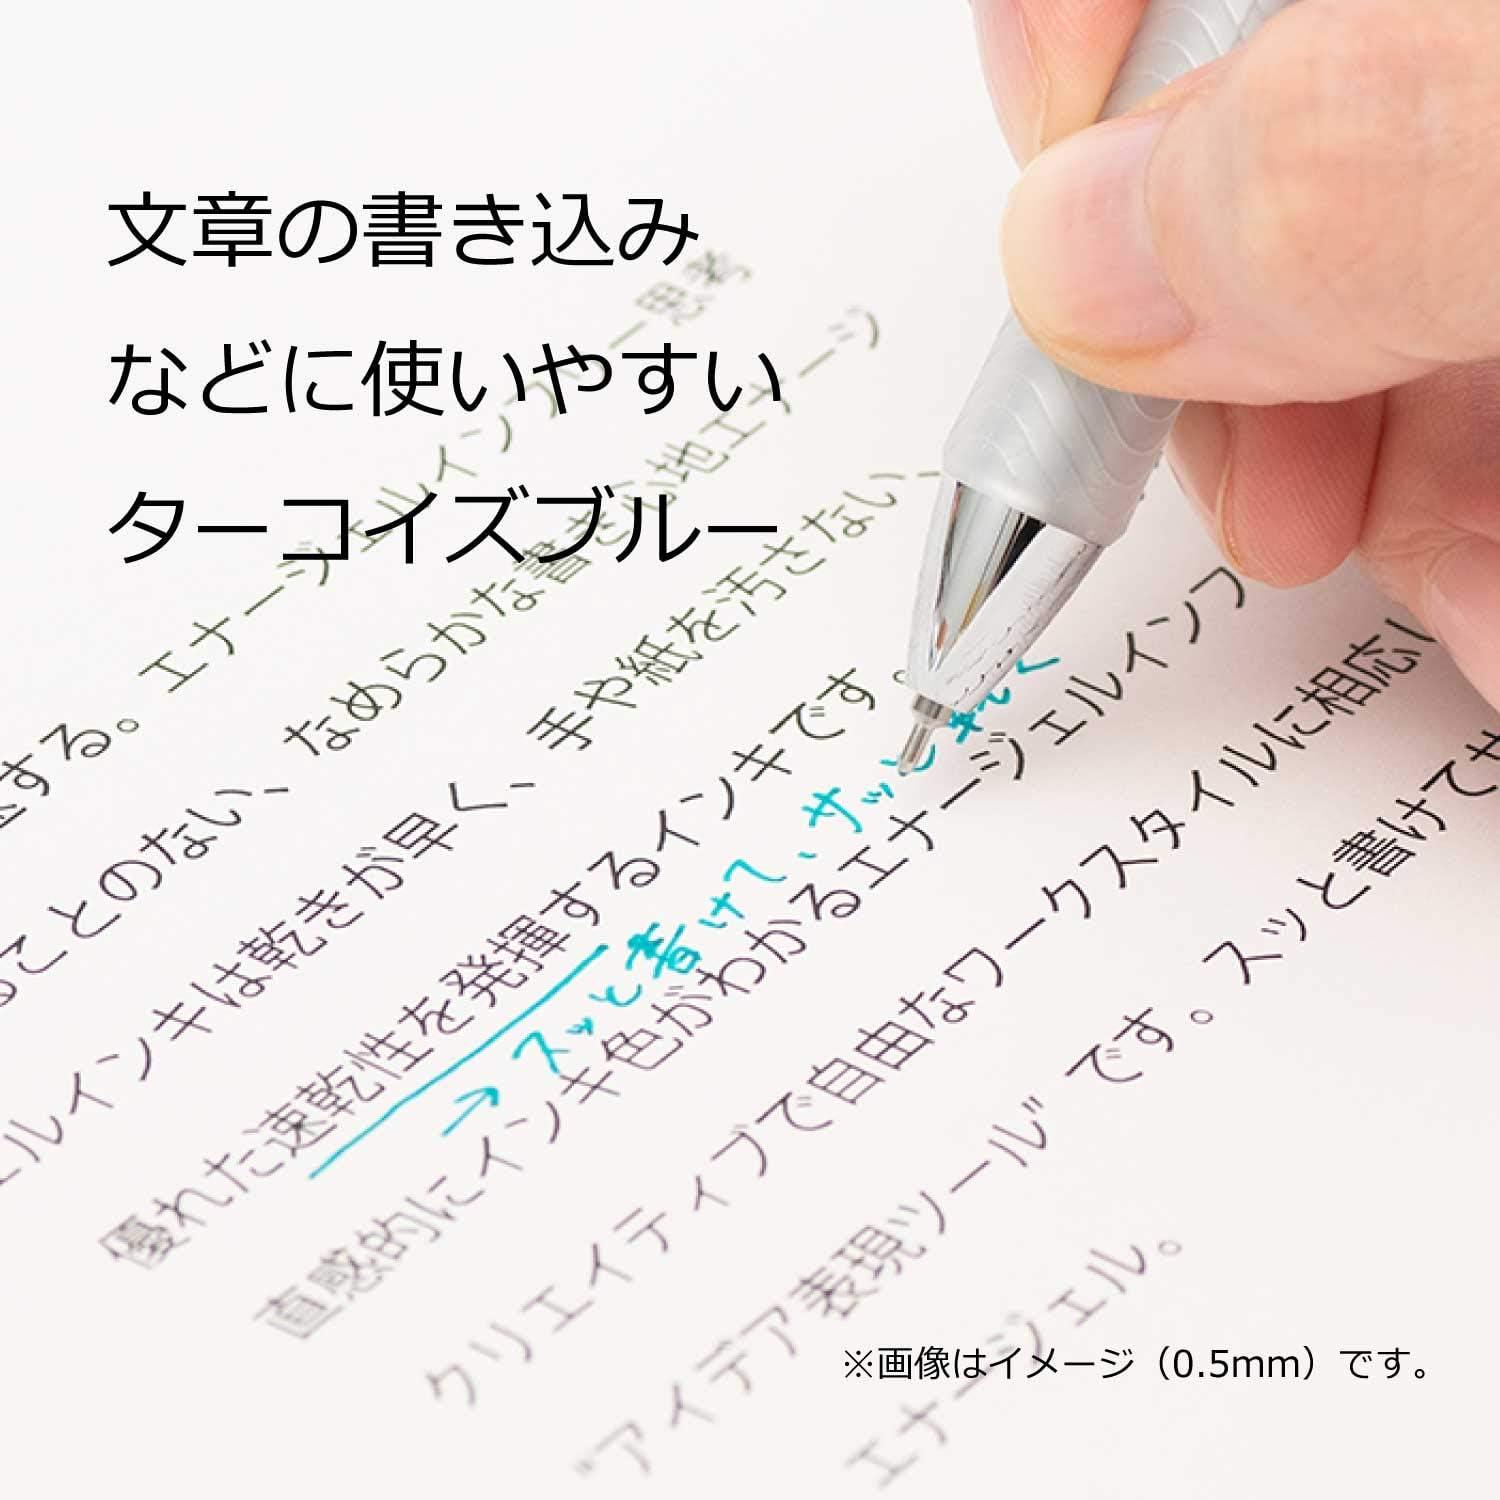 文章の書き込み
などに使いやすい
ターコイズブルー
する。エナージェルインフリー思考
ることのない、なめらかな書き心地エナージ
ェルインキは乾きが早く、手や紙を汚さない、
優れた速乾性を発揮するインキです。
→スッと書けて、サッと乾く
直感的にインキ色がわかるエナージェルインフ
クリエイティブで自由なワークスタイルに相応し
"アイデア表現ツール" です。スッと書けてサ
エナージェル。
※画像はイメージ（0.5mm）です。